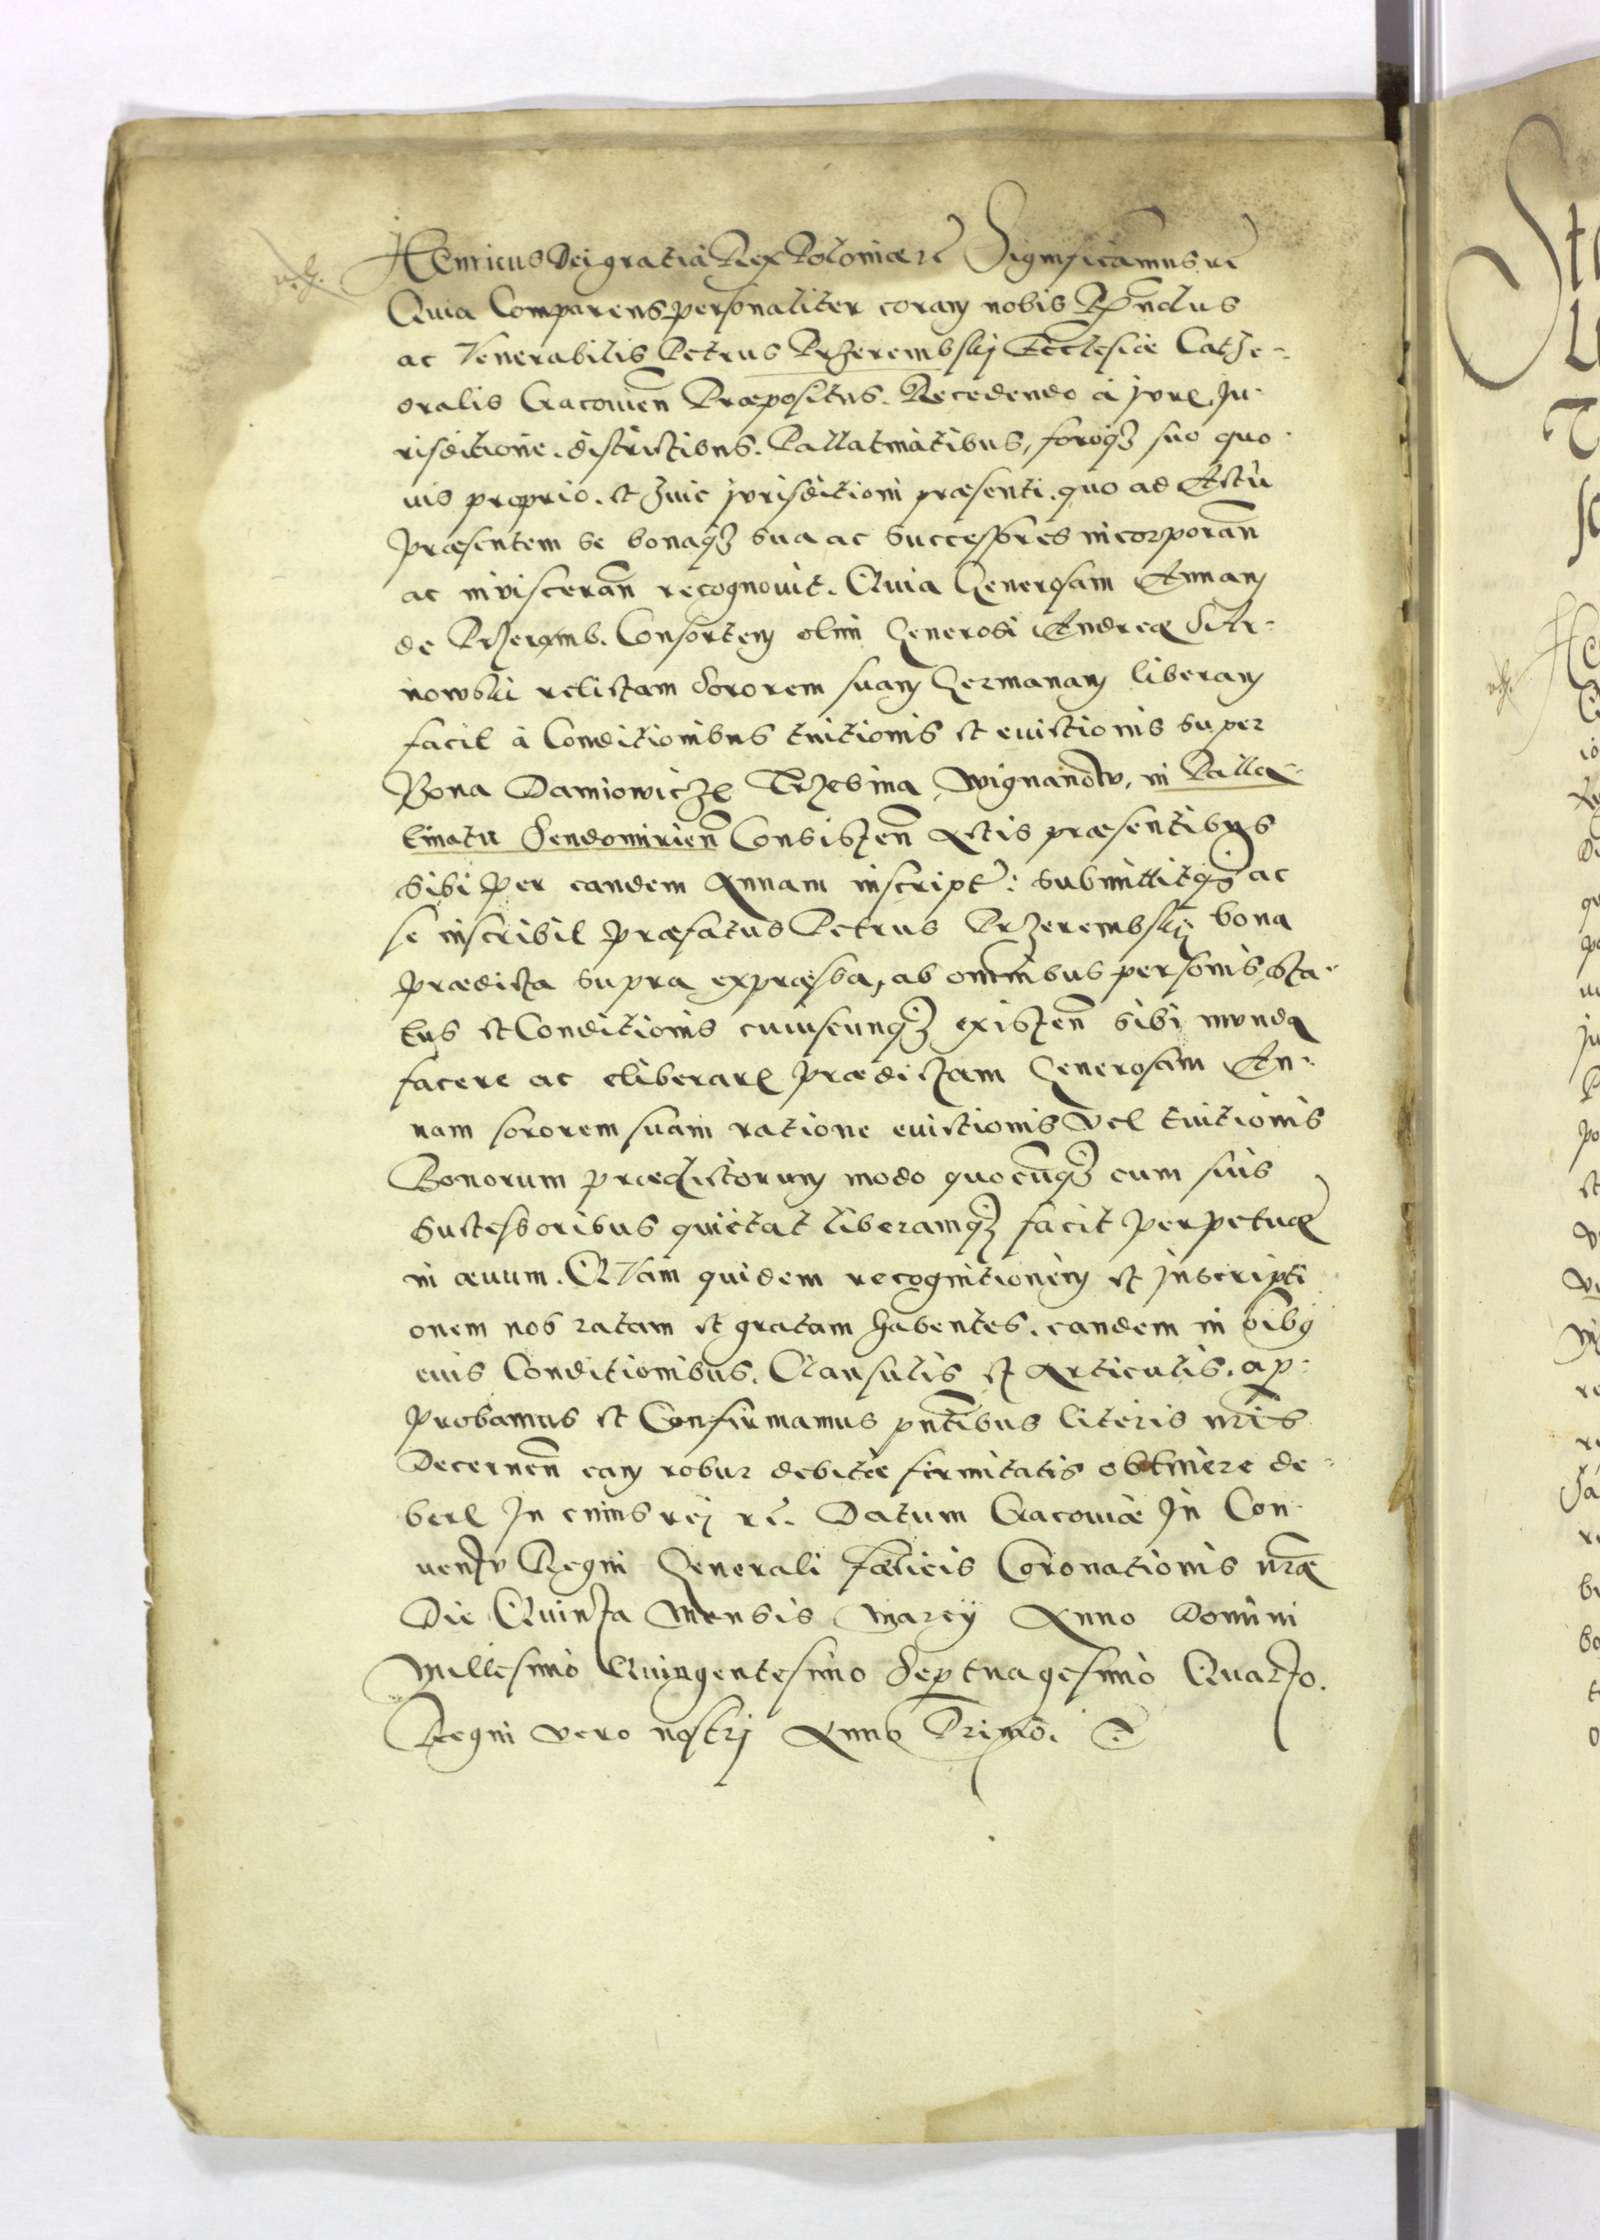 Henricus Dei gratia Rex Poloniae etc Significamus etc
Quia Comparens personaliter coram nobis Rndus
ac Venerabilis Petrus Przerembskij Ecclesiae Cathe-
dralis Cracovien Praepositus. Recedendo à jure, Ju-
risditione, districtibus, Pallatinatibus, foroq3 suo quo-
vis proprio, et huic jurisditioni praesenti, quo ad Actu
praesentem se bonaq3 sua ac successores incorporan
ac invisceran recognovit. Quia Generosam Annam
de Przeremb. Consortem olim Generosi Andreae
nowski relictam Sororem suam Germanam liberam
facit à Conditionibus tuitionis et evictionis super
Bona Damiowicze Trzesina, Wignanow, in Palla-
tinatu Sendomirien Consisten Actis praesentibus
sibi per eandem Annam inscript: submittitq3 ac
se inscribit praefatus Petrus Przerembskij bona
praedicta supra expraessa, ab omnibus personis, sta-
tus et Conditionis cuiuscunq3 existen sibi munda
facere ac eliberare praedictam Generosam An-
nam sororem suam ratione evictionis vel tuitionis
Bonorum praedictorum modo quocunq3 cum suis
successoribus quietat liberamq3 facit perpetuae
in aevum. Quam quidem recognitionem et inscripti
onem nos ratam et gratam habentes, eandem in oibus
eius Conditionibus, Clausulis et Articulis, ap-
probamus et Confirmamus pntibus literis nris
Decernen eam robur debitae firmitatis obtinere de-
bere In cuius rei etc. Datum Cracoviae In Con-
ventu Regni Generali faelicis Coronationis nrae
Die Quinta Mensis Marcij Anno Domini
Millesimo Quingentesimo Septuagesimo Quarto.
Regni vero nostrj Anno Primo.